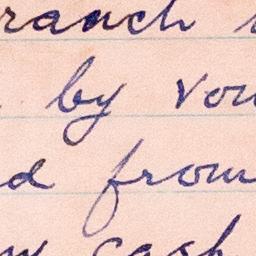 ranch
by you
d from
cash